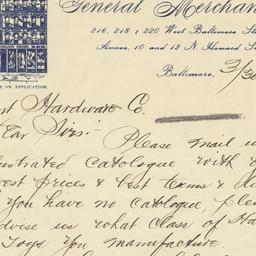 General Merchan
216, 218 & 220 West Baltimore St
Annex, 10 and 12 N. Howard S
Baltimore, 3/3
E ON APPLICATION.
nt Hardware Co.
ear Sirs:-
Please mail u
ustrated Catologue with
west prices & best terms &
you have no Catologue, ple
dvise us what class of Ha
Toys you manufacture